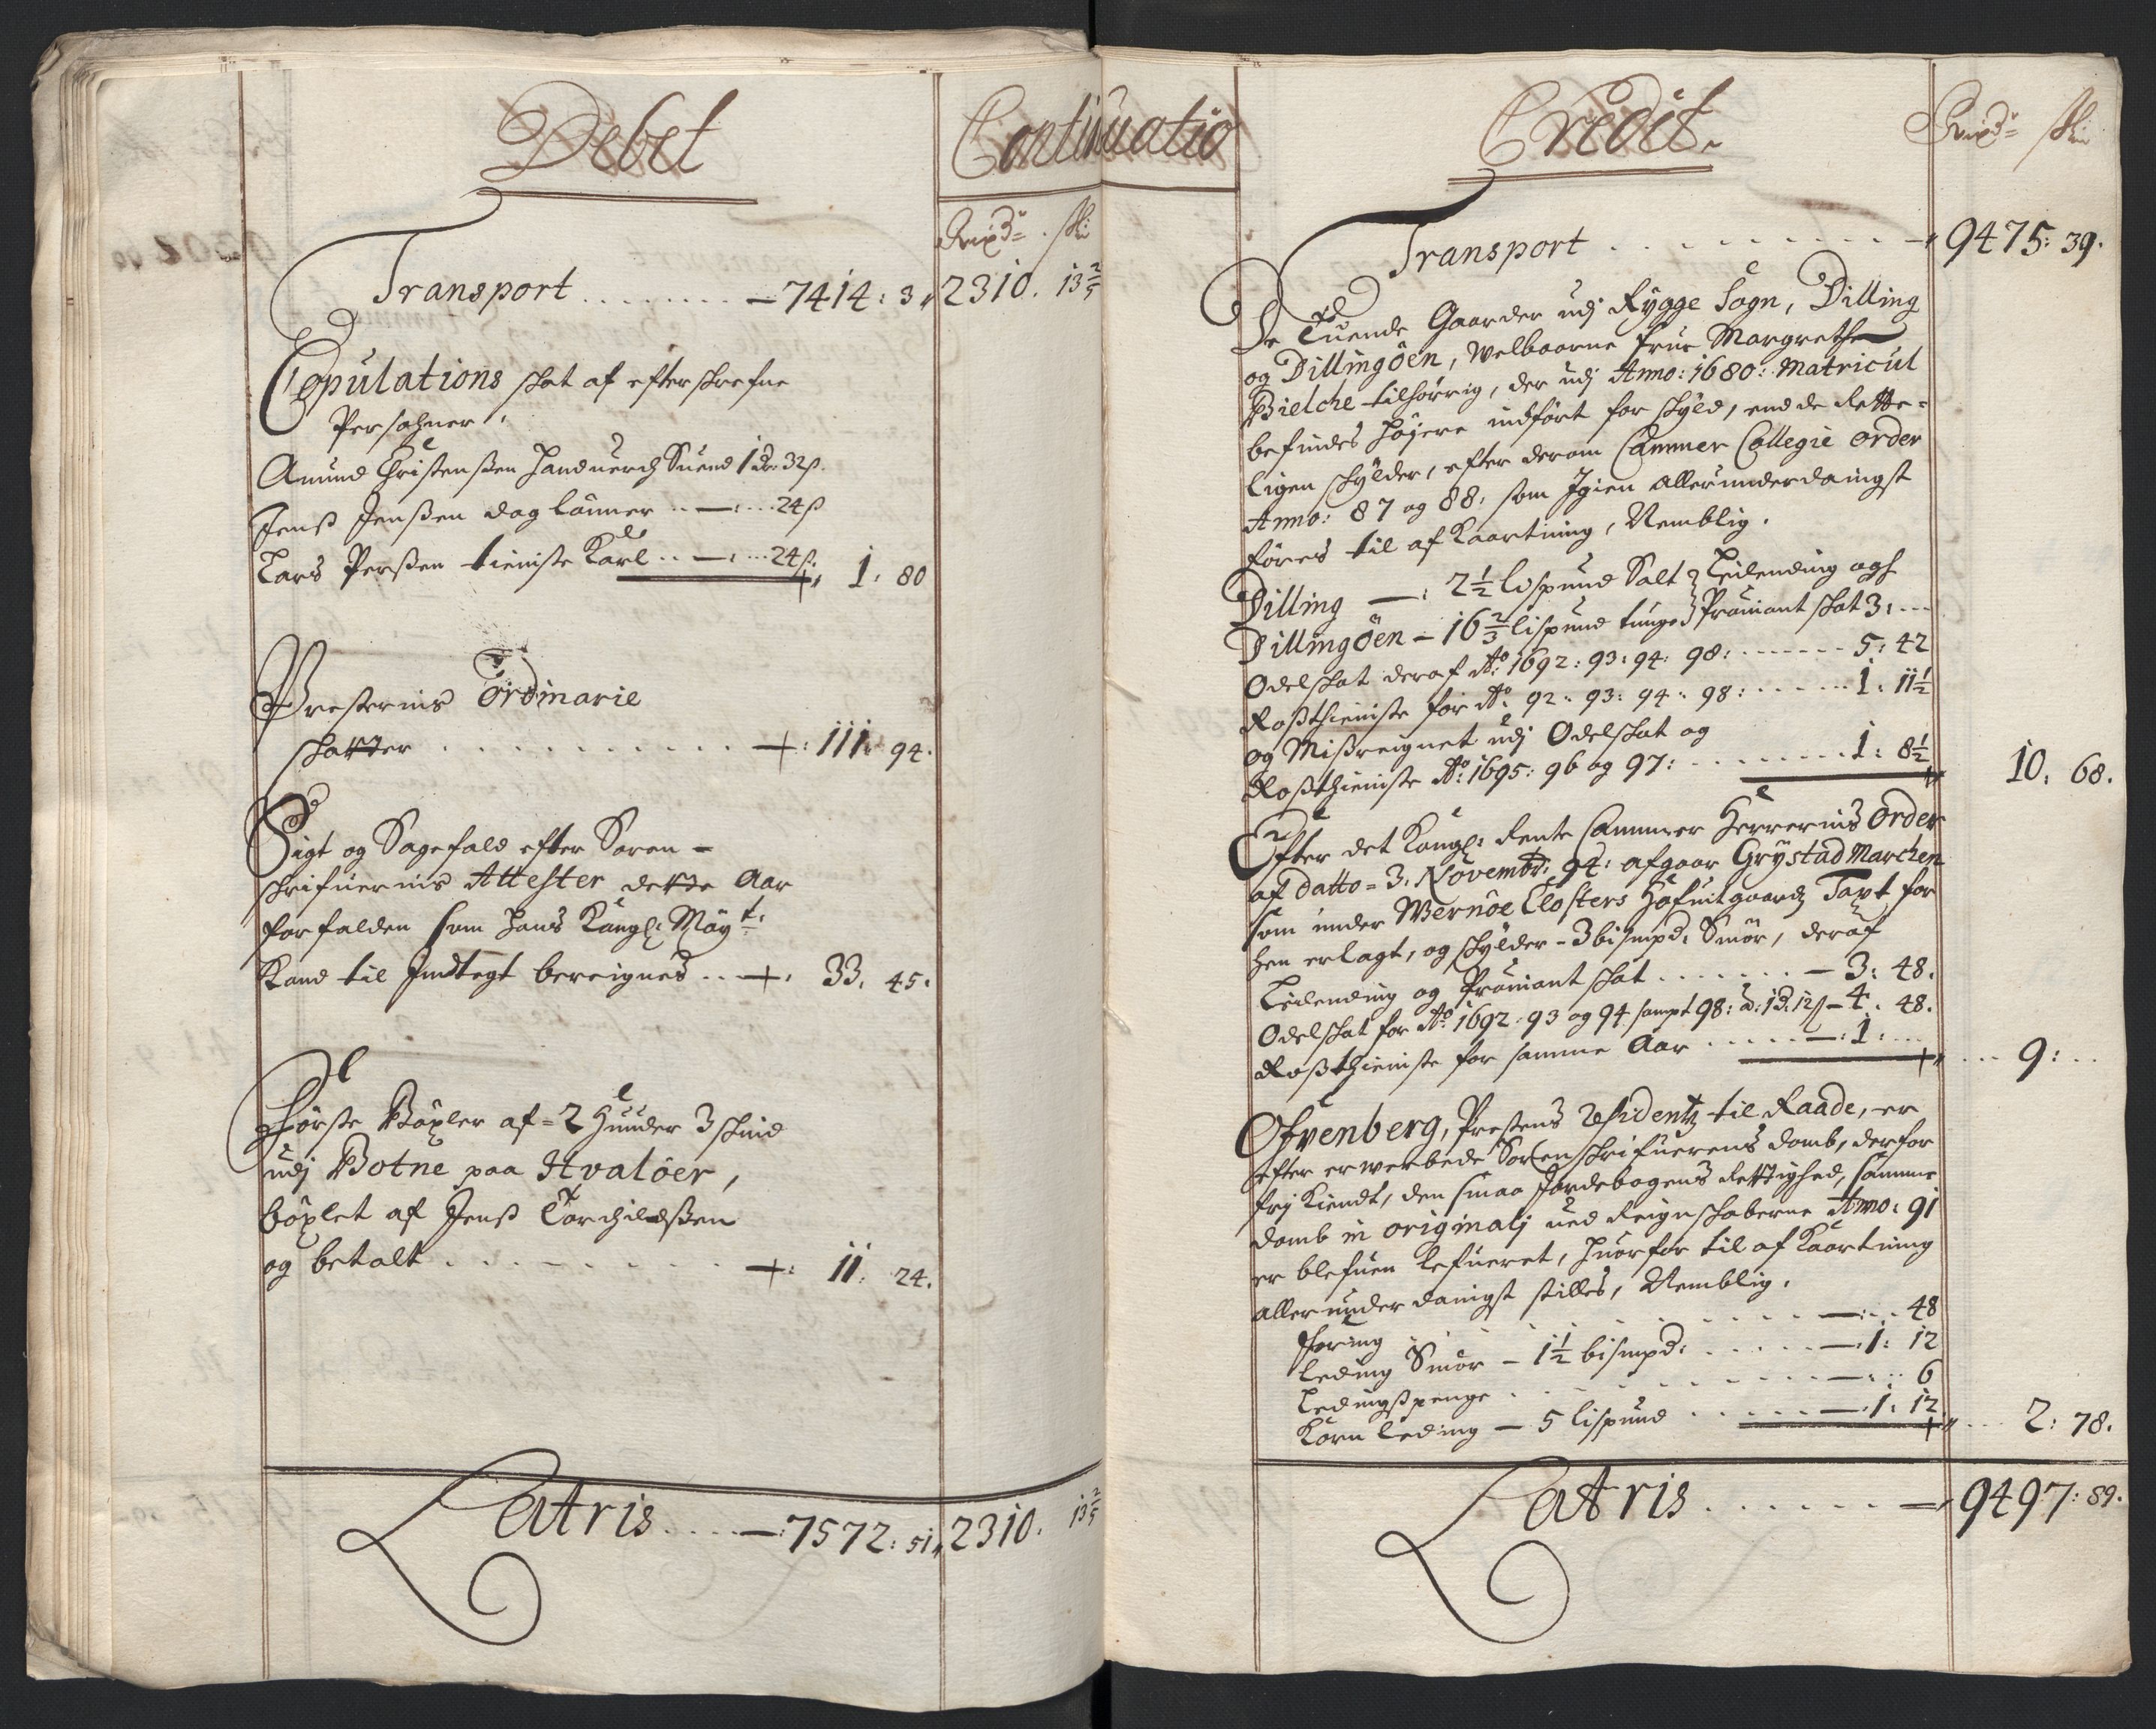 Debet
Continuatio
Rixdr. ski
Transport . . . . . . . . — 7414: 3 2310. 13 2/5
Copulations skat af efterskrefne
Persohner,
Amund Christensen Handuerch Suend 1 dr: 32 ß.
Jenß Jenßen dag lönner .. —: ... 24 ß
Lars Perßen tieniste Karl .. —: ... 24 ß. 1. 80
Presternis Ordinarie
skatter . . . . . . . . . . 111. 94.
Sigt og Sagefald efter Soren-
skrifuernis Attester dette Aar
forfalden som Hans Kongl: Mayt:
Kand til Indtegt bereignes .. 33. 45.
Förste Böxler af = 2 Hunder 3 skind
udj Botne paa Hvalöer,
böxlet af Jenß Torchildßen
og betalt . . . . . . . . 11. 24.
Latris . . . . —: 7572: 51 2310. 13 2/5
Credit.
Rixdr. ski
Transport . . . . . . . . . . 9475: 39.
De Tuende Gaarder udj Rygge Sogn, Dilling
og Dillingöen, Welbaarne Frue Margrethe
Bielche tilhörrig, der udj Anno: 1680: Matricul
befindes höjere indfört for skyld, end de rette-
ligen skylder, efter derom Cammer Collegie order
Anno: 87 og 88: som Igien allerunderdanigst
föres til af Kaartning, Nemblig.
Dilling —: 2 1/2 Lispund Salt } Leilending og
Dillingöen – 16 2/3 lispund tunge } Prouiant skat 3: ---
Odelskat deraf Ao: 1692: 93: 94: 98: . . . . . . 5: 42
Roßthieniste for Ao: 92: 93: 94: 98: . . . . . . 1: 11 1/2
og Mißreignet udj Odelskat og
Roßthieniste Ao: 1695: 96 og 97: . . . . . . . . 1: 8 1/2 10. 68.
Efter det Kongl: Rente Cammer Herrernis Order
af Datto = 3. Novembr: 94: afgaar Grystad Marchen
som under Wernöe Closters Hofuitgaardz Taxt for
hen erlagt, og skylder – 3 bismpd: Smör, deraf
Leilending og Prouiant skat . . . . . . . — 3: 48.
Odelskat for Ao: 1692: 93 og 94 sampt 98: â: 1 d: 12 ß – 4. 48.
Roßthieniste for samme Aar . . . . . —: 1: ... 9: ..
Ofvenberg, Prestens Residentz til Raade, er
efter erwerbede Sorenskrifuerens domb, derfor
frj Kiendt, den smaa Jordebogens Rettighed, samme
domb in originalj ued Reignskaberne Anno: 91
er blefuen lefueret, huorfor til af Kaortning
allerunder danigst stilles, Nemblig.
Foring . . . . . . . . . . . . —: . . 48
Leding Smör – 1 1/2 bismpd: . . . . . —: 1: 12
Ledingßpenge . . . . . . . . . . —: .. 6
Korn Leding – 5 lispund . . . . . —: 1: 12 2: 78.
Latris . . . . . . — 9497: 89.